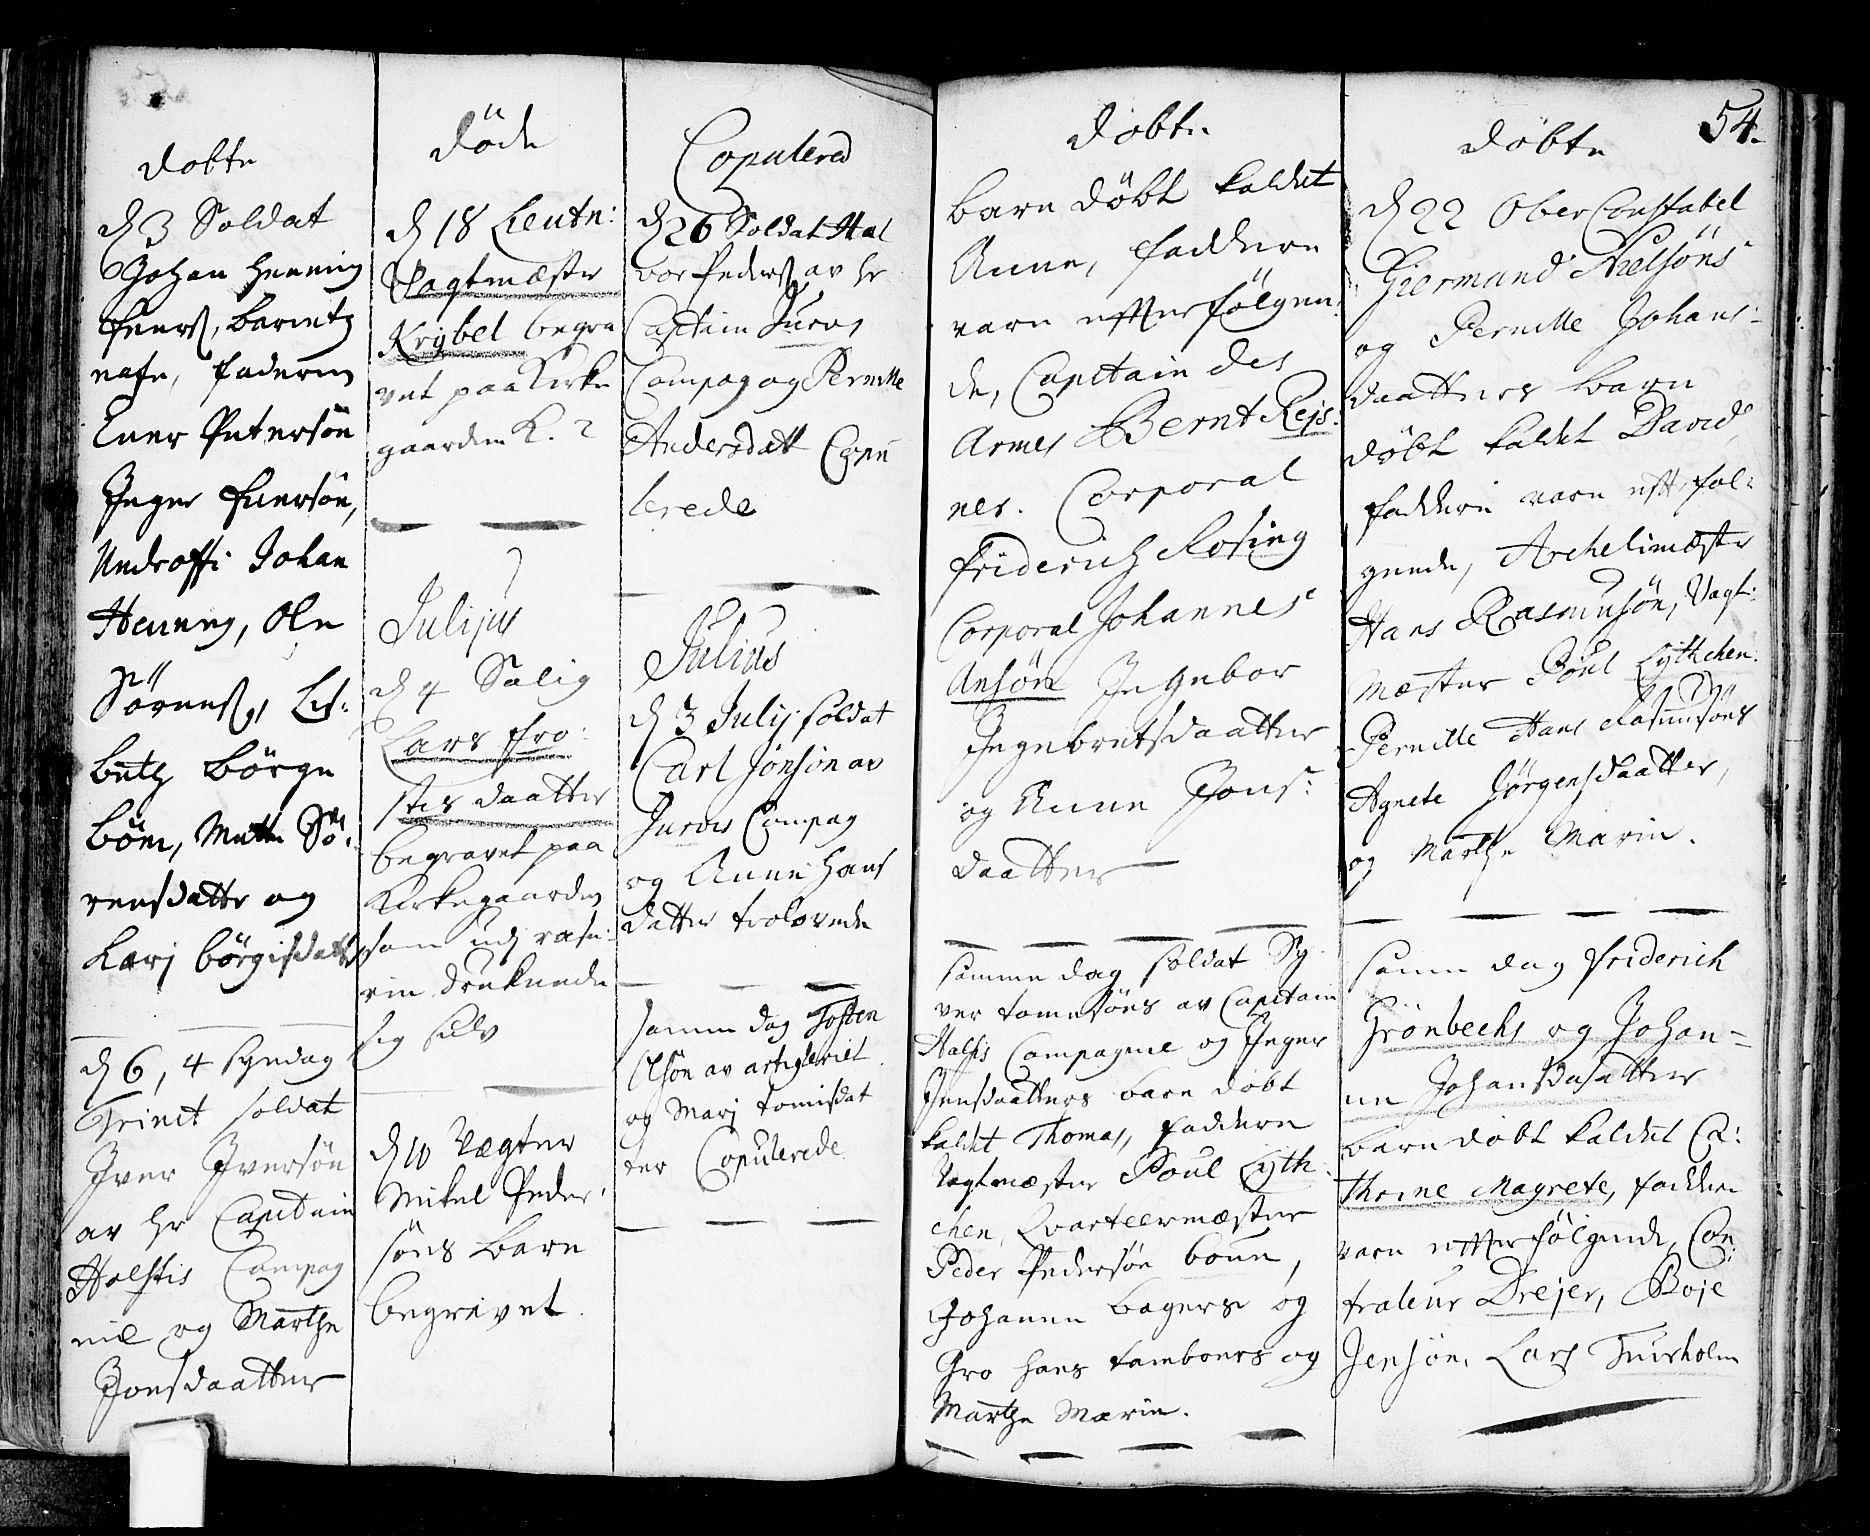 Døbte
d 3 Soldat
Johan Henning
Enerß, barnetz
nafn, faderen
Ener Petersøn
Inger Enersøn,
Underoffi Johan
Henning, Ole
Sørenß, Lis-
beth Børge
bøm, Mette Sø-
rensdatter og
Karj Børgisdatt
d 6, 4 Syndag
Trinit soldat
Iver Iversøn
av hr Capitain
Holstis Compag
nie og Marthe
Jonsdaatter
Døde
d 18 Lieutn:
Vagtmæster
Krÿbel begra
vet paa Kirke
gaarden K. 2
Julijus
d 4 Salig
Lars Pro:
stes daatter
begravet paa
Kirkegaarden
som udj rase-
rie druknede
sig selv
d 10 Vægter
Mikel Peder-
søns barn
begravet.
Copulered
d 26 Soldat Hal
vor Pederß av hr
Captein Juros
Compag og Pernille
Andersdatt Copu
lerede
Julius
d 3 Julij soldat
Carl Jonsøn av
Juros Compag
og Anne Hans
datter trolovede
samme dag Tosten
Olsøn av artigleriet
og Marj Tomisdat
ter Copulerede
Døbte
barn døbt kaldet
Anne, fadderne
vare efterfølgen-
de, Capitain des
Armes Bernt Rejs-
ner. Corporal
Friderich Rosing
Corporal Johannes
Ansøn Ingebor
Ingebretsdaatter
og Anne Jons-
daatter
samme dag soldat Sy
ver Tomesøns av Capitain
Holstis Compagnie og Inger
Jensdaatters barn døbt
kaldet Thomas, fadderne
Vagtmæster Poul Lyth
chen, Qvarteermæster
Peder Pedersøn boun,
Johanne bagers og
Gro Hans Tambours og
Marthe Marie.
54.
Døbte
d 22 Ober Constabel
Giermand Nielsøns
og Pernille Johans-
daatters barn
døbt kaldet David,
fadderne vare efterføl-
gende, Archelimæster
Hans Rasmusøn, Vagt-
mæster Poul Lythchen.
Pernille Hans Rasmusøns
Agnete Jørgensdaatter,
og Marthe Marie.
samme dag Friderich
Grønbechs og Johan-
ne Johansdaatter
barn døbt kaldet Ca-
thrine Magrete, fadderne
vare efterfølgende, Con-
traleur Drejer, Boje
Jensøn, Lars Tuxholm